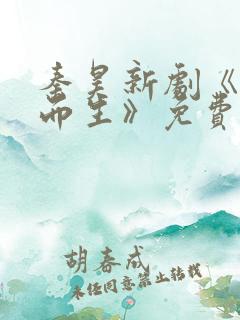 秦昊新劇《
而生》免費
胡春成
未经同意禁止转载